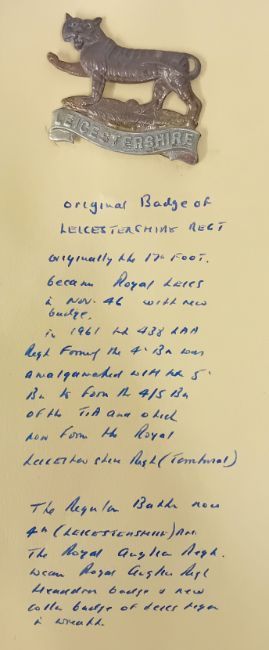 LEICESTERSHIRE
original Badge of
LEICESTERSHIRE REGT
originally the 17th FOOT.
became Royal Leics
in NOV. 46 with new
badge.
in 1961 the 438 LAA
Regt Formed the 4th Bn was
amalgamated with the 5th
Bn to form the 4/5 Bn
of the T.A and which
now form the Royal
Leicestershire Regt (Territorial)
The Regular Battn now
4th (LEICESTERSHIRE) Bn.
The Royal Anglian Regt.
wear Royal Anglian Regt
Headdress badge & new
collar badge of Leics tiger
in wreath.